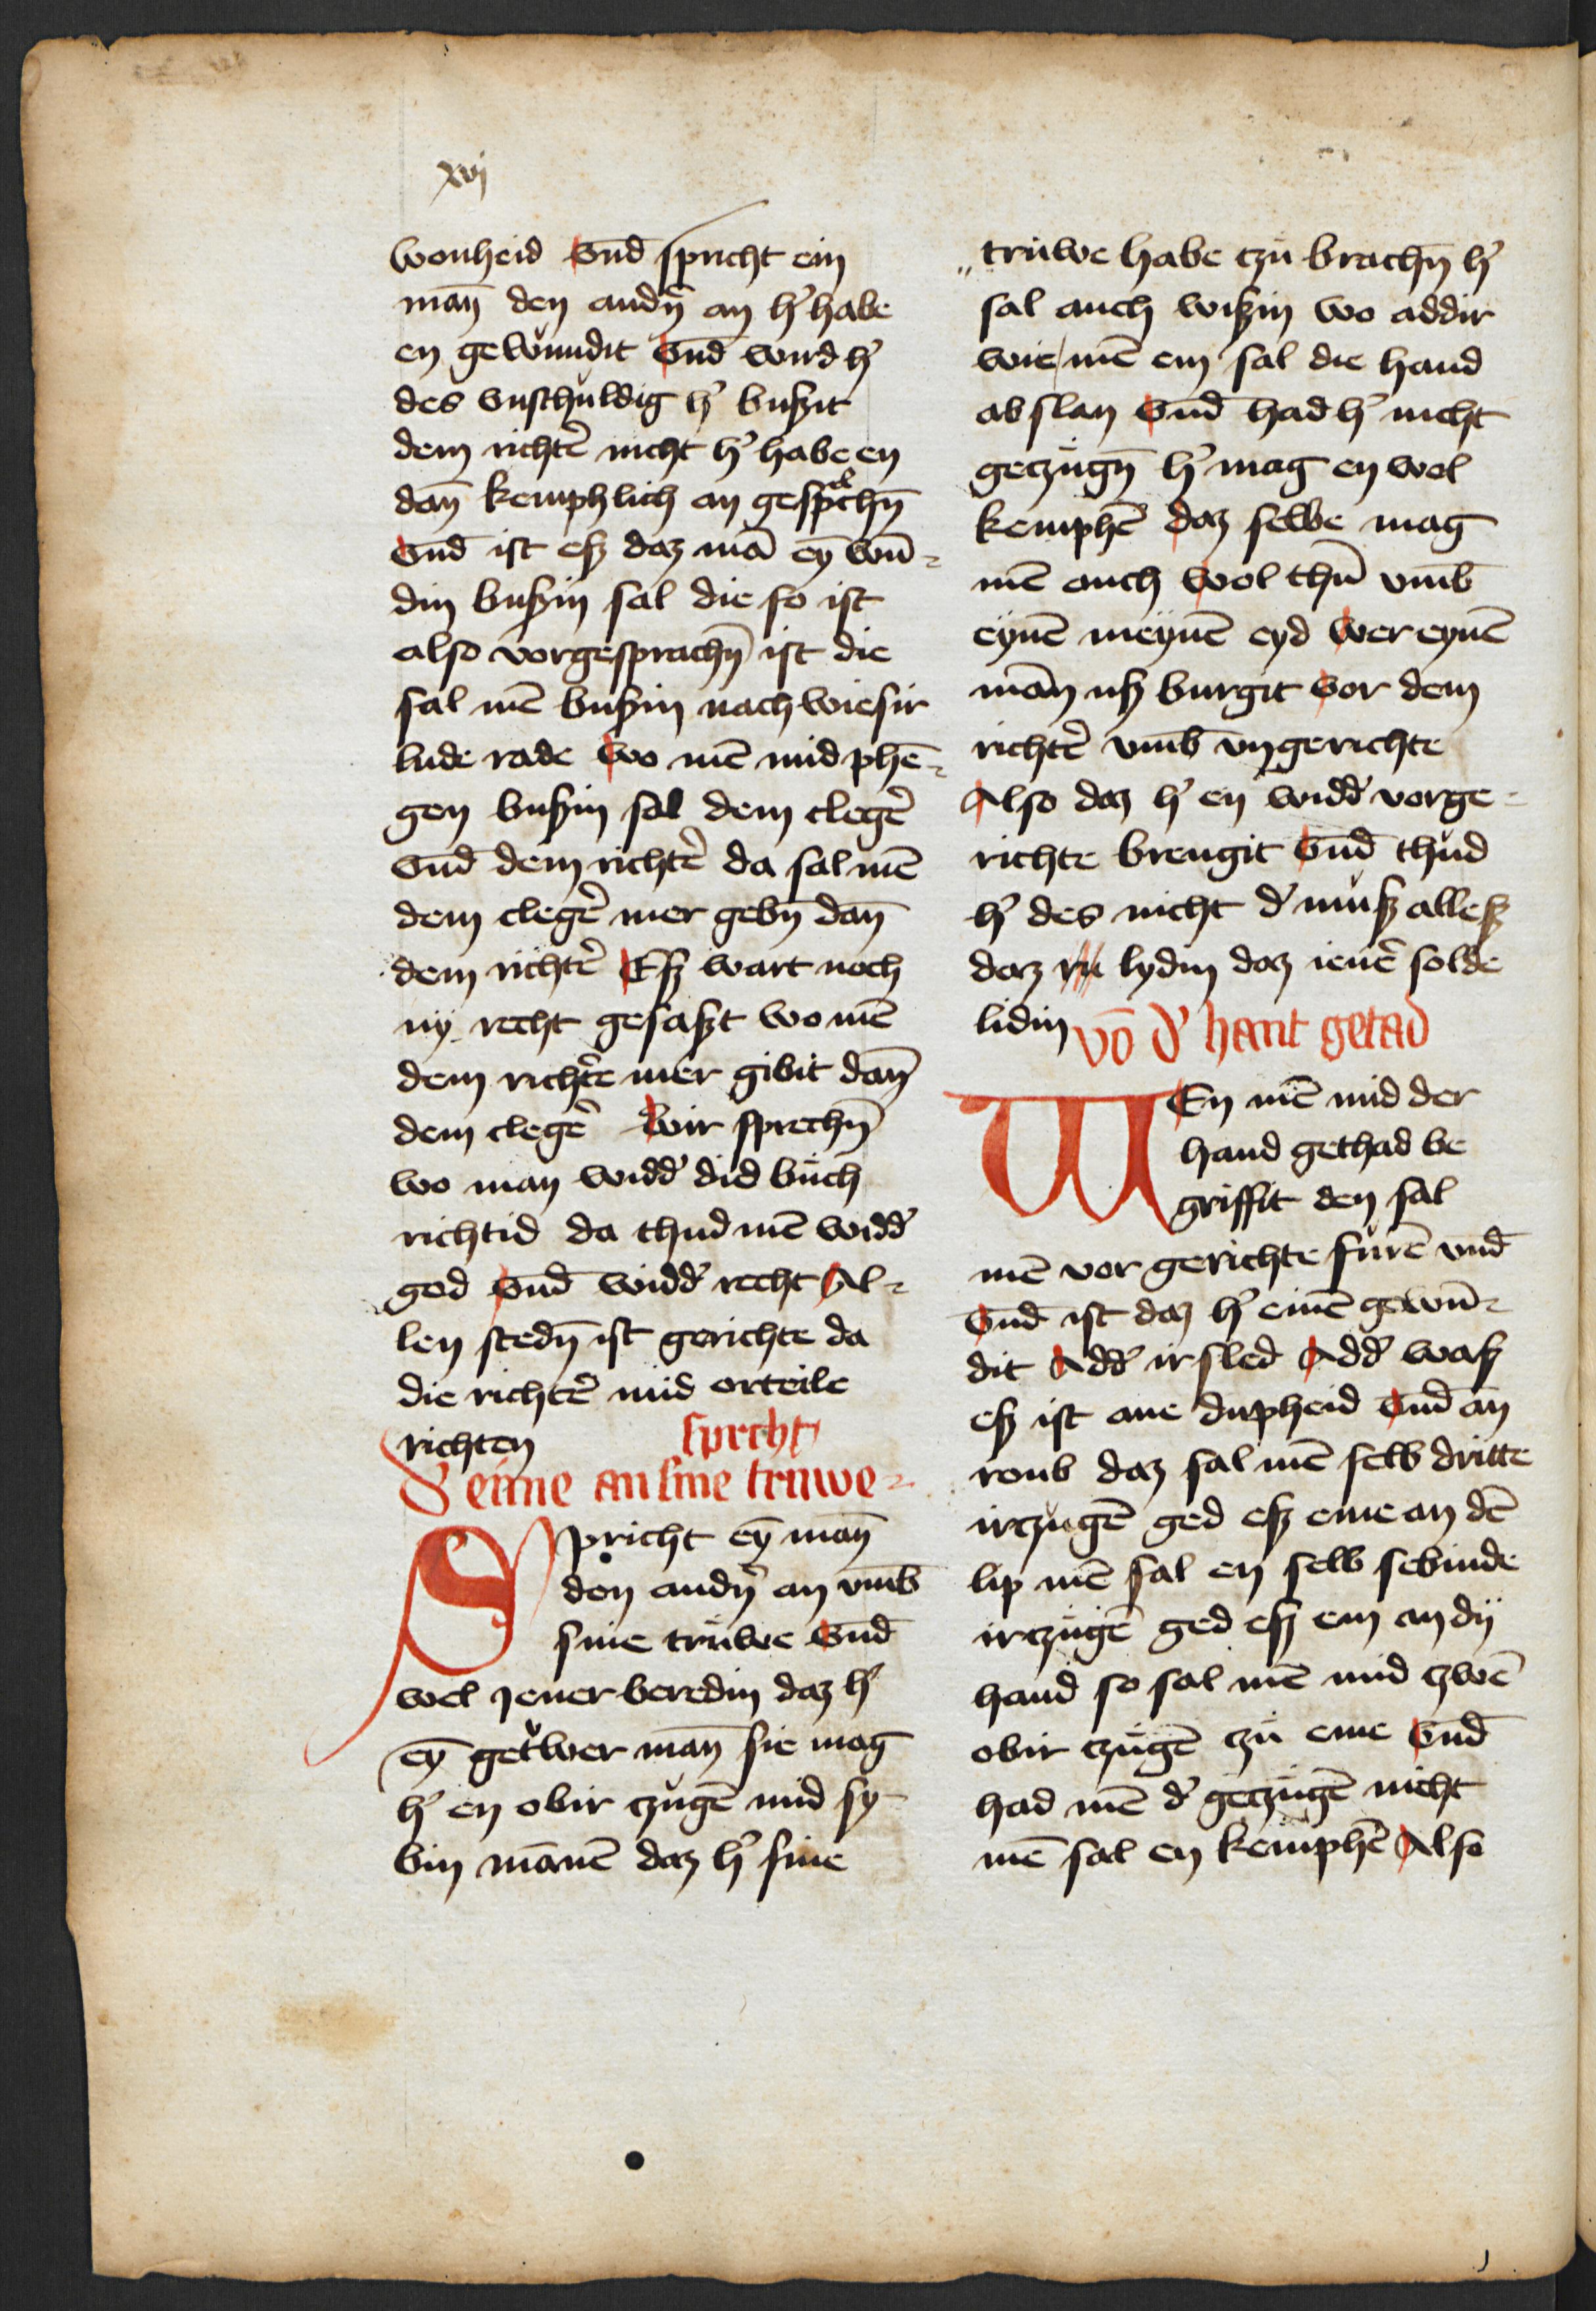 xvj
wonheid vnd̄ spricht ein
man̄ den andn̄ an h' habe
en gewundit vnd̄ wird h'
des vnschuldig h' bußit
dem richt̄' nicht h' habe en
dan̄ kemphlich an gesp͛chn̄
vnd̄ ist eß daz mā eȳ wū-
din bußin sal die so ist
also vorgesprachn̄ ist die
sal mē bußin nach wiesir
lude rade wo mē mid phē-
gen bußin sal dem cleg'
vnd̄ dem richt' da sal mē
dem cleg' mer gebn̄ dan̄
dem richt' Eß wart noch
ny recht gesaßt wo mē
dem richt'e mer gibit dan̄
dem cleg' wir sprechn̄
wo man widd' did buch
richtid da thud mē widd'
god vnd̄ widd' recht Al-
len stedn̄ ist gerichte da
die richt' mid orteile
richten
spricht
d' eime an sine truwe
Spricht eȳ man̄
den andn̄ an vmb̄
sine truwe vnd̄
wel jener beredin daz h'
eȳ getruwer man̄ sie mag
h' en obir czugē mid sy-
bin mānē daz h' sine
truwe habe czu brachn̄ h'
sal auch wißin wo addir
wie mē em sal die hand
abslan vnd̄ had h' nicht
geczugn̄ h' mag en wol
kemphē daz selbe mag
mē auch wol thū vmb̄
eynē meynē eyd wer eynē
mān uß burgit vor dem
richt' vmb̄ vngerichte
Also daz h' en widd' vorge-
richte brengit vnd̄ thud
h' des nicht d' muß alleß
daz lydin daz ien' solde
lidin
vō d' hant getad
WEn mē mid der
hand gethad be
griffit den sal
mē vor gerichte furē vnd̄
vnd̄ ist daz h' einē gewū-
dit Add' irsled Add' waß
eß ist ane dupheid vnd̄ an
roub daz sal mē selb dritte
irczugē ged eß eme an dē
lip mē sal en selb sebinde
irczugē ged eß em an dy
hand so sal mē mid czwē
obir czugē czu eme vnd̄
had mē d' geczugē nicht
mē sal en kemphē Also